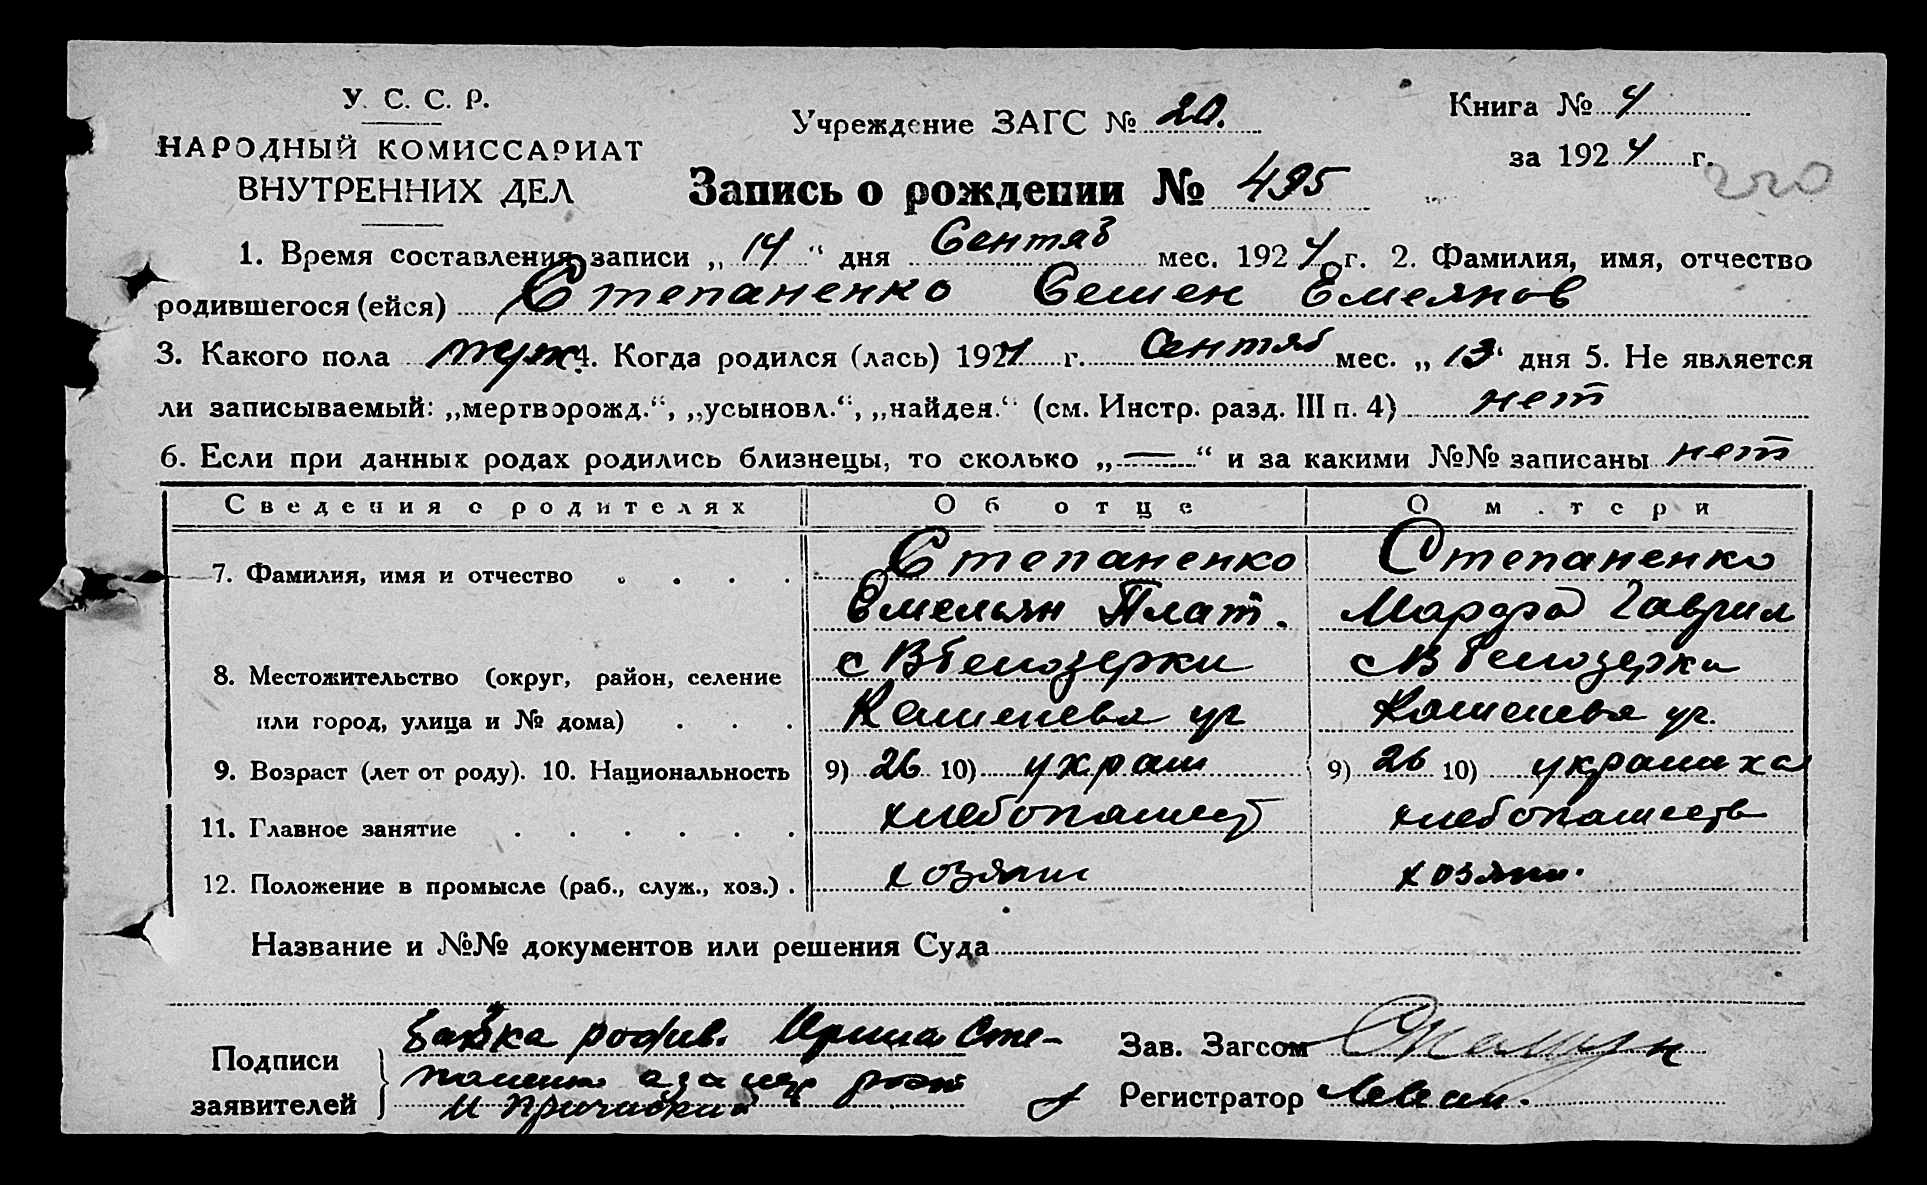 У. С. С. Р.
НАРОДНЫЙ КОМИССАРИАТ
ВНУТРЕННИХ ДЕЛ
Учреждение ЗАГС № 20.
Книга № 4
за 1924 г.
220
Запись о рождении № 495
1. Время составления записи „14“ дня Сентяб мес. 1924 г. 2. Фамилия, имя, отчество
родившегося (ейся) Степаненко Семен Емелянов
3. Какого пола муж 4. Когда родился (лась) 1924 г. Сентяб мес. „13“ дня 5. Не является
ли записываемый: „мертворожд.“, „усыновл.“, „найден.“ (см. Инстр. разд. III п. 4) нет
6. Если при данных родах родились близнецы, то сколько „—“ и за какими №№ записаны нет
Сведения о родителях Об отце О матери
7. Фамилия, имя и отчество Степаненко Степаненко
Емельян Плат. Марфа Гаврил
8. Местожительство (округ, район, селение с В Белозерки с В Белозерки
или город, улица и № дома)
9. Возраст (лет от роду). 10. Национальность 9) 26 10) украин 9) 26 10) украинка
11. Главное занятие хлебопашест хлебопашеств
12. Положение в промысле (раб., служ., хоз.) хозяин хозяин.
Название и №№ документов или решения Суда
Подписи
заявителей
Бабка родив. Ирина Сте-
Зав. Загсом
Регистратор